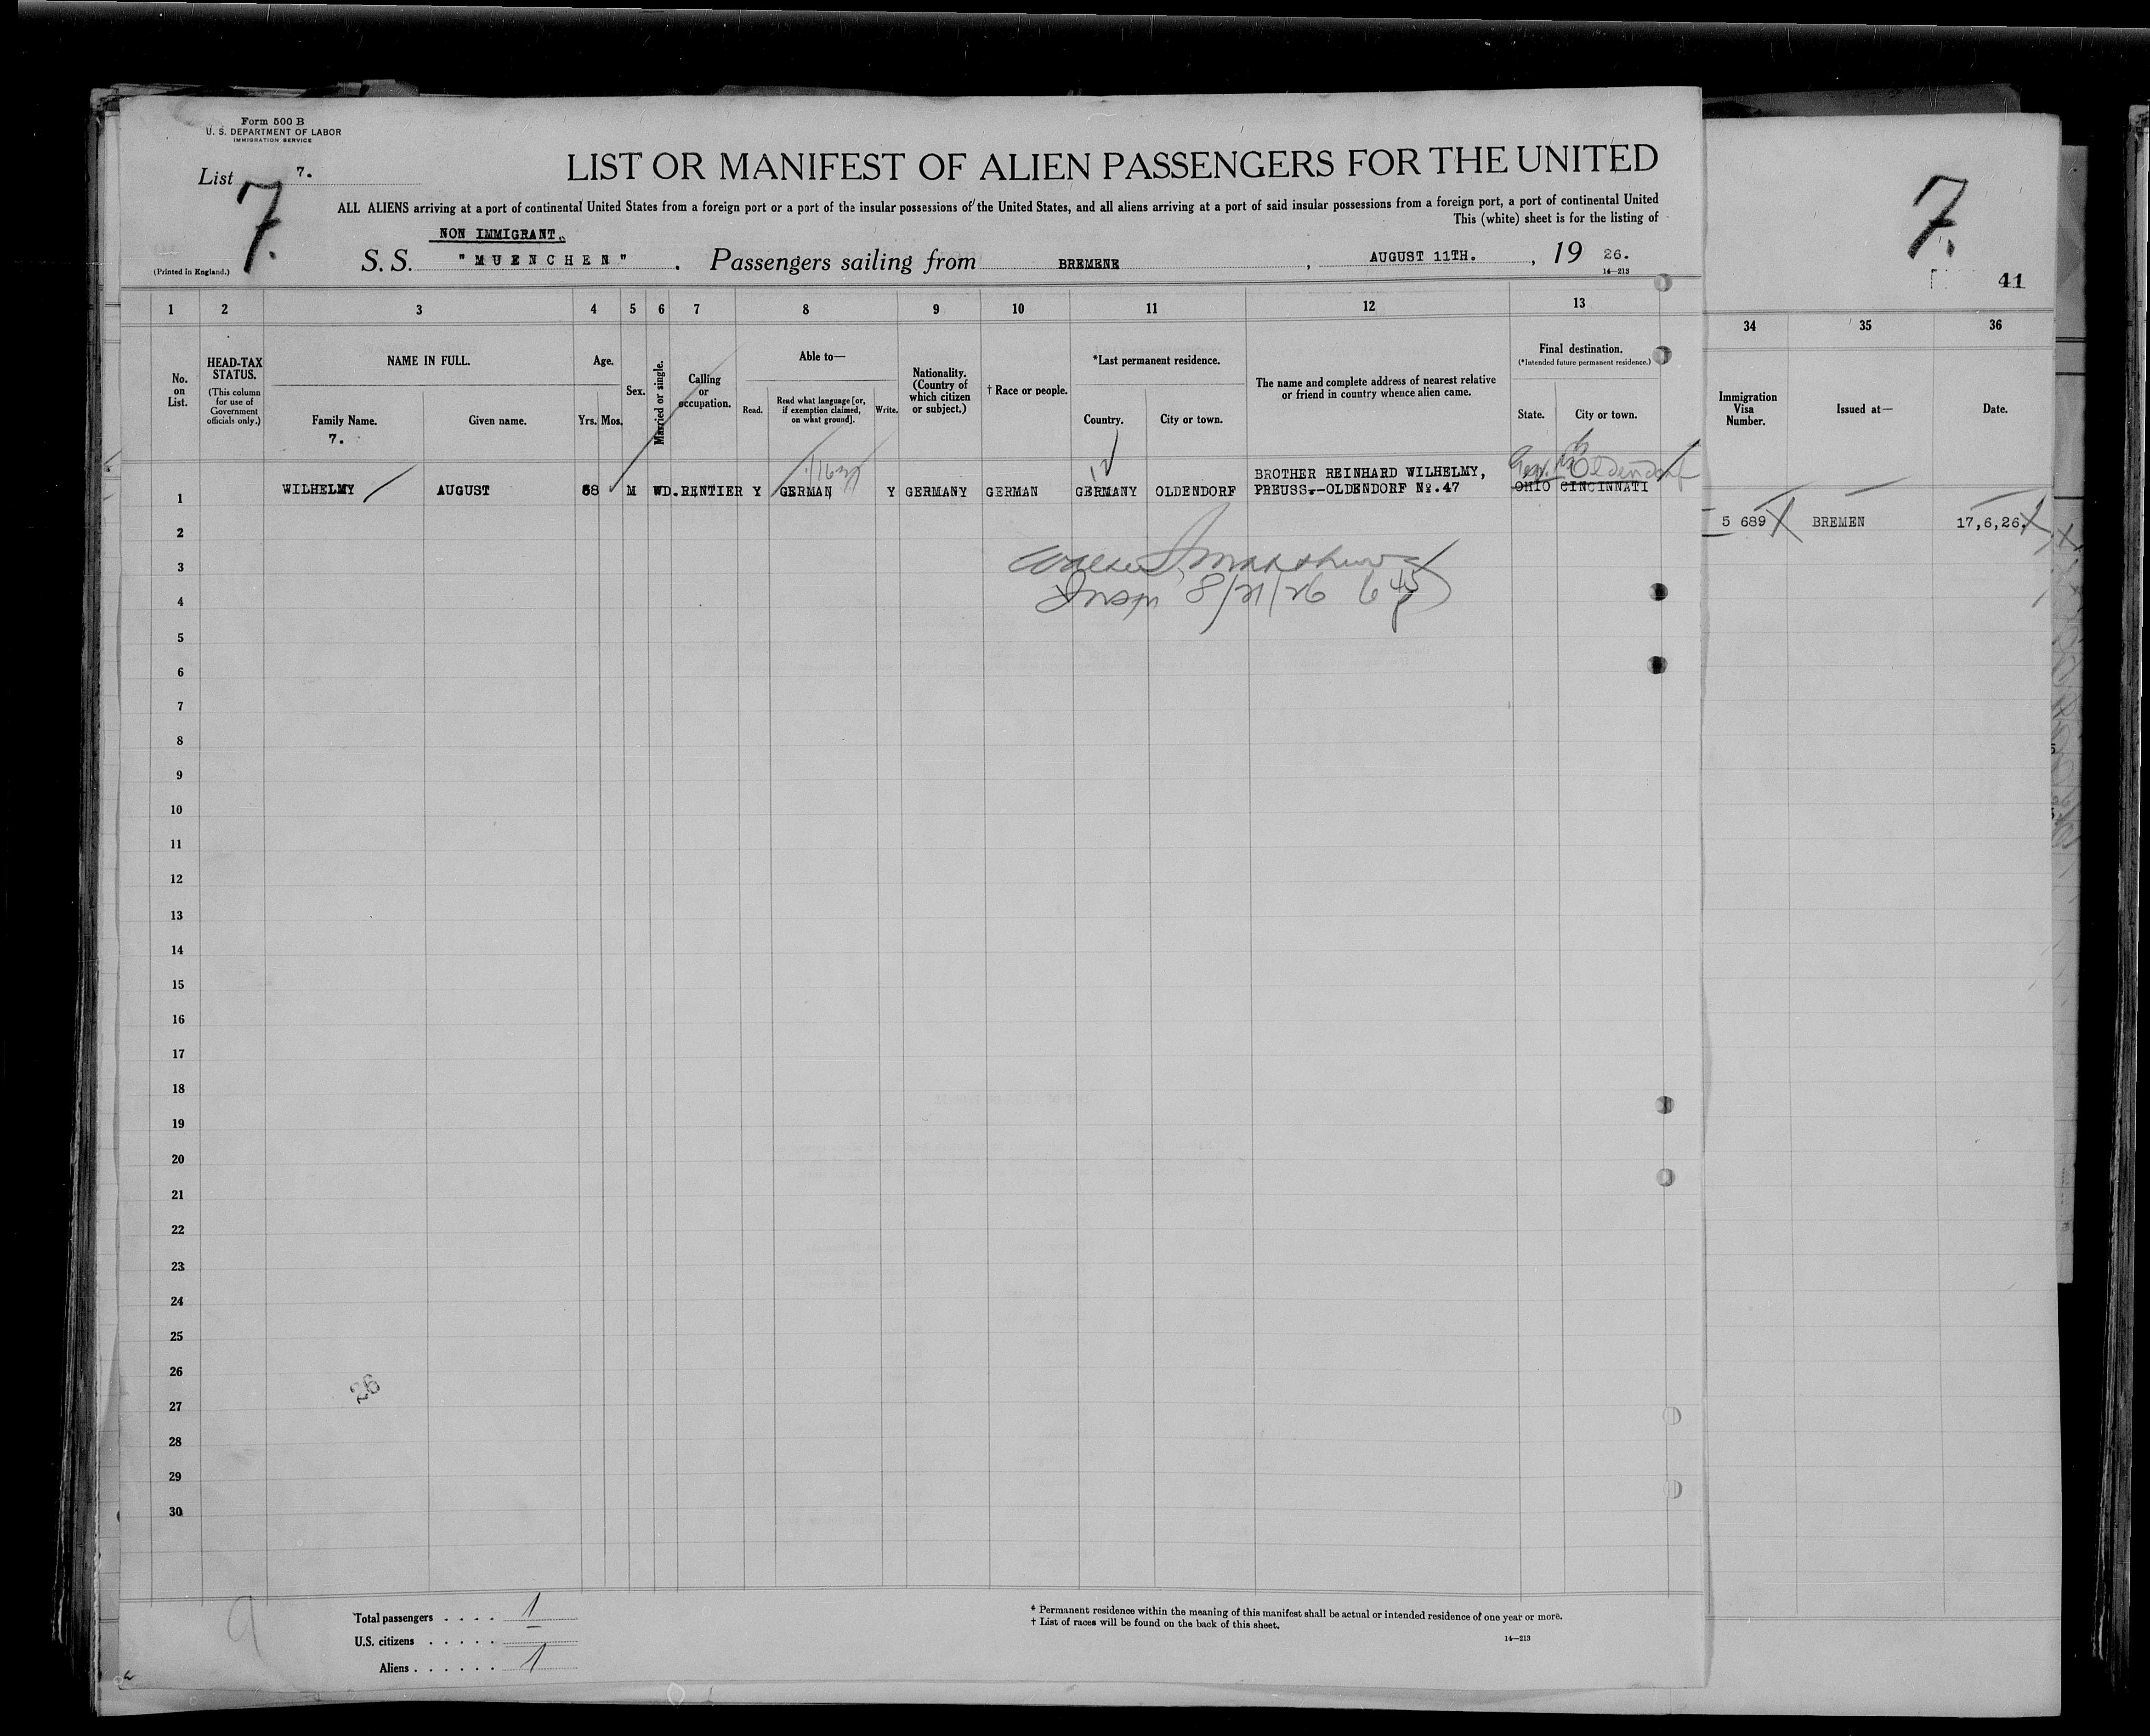 Form 500 B
U. S. DEPARTMENT OF LABOR
IMMIGRATION SERVICE
List 7.
7.
LIST OR MANIFEST OF ALIEN PASSENGERS FOR THE UNITED
ALL ALIENS arriving at a port of continental United States from a foreign port or a port of the insular possessions of the United States, and all aliens arriving at a port of said insular possessions from a foreign port, a port of continental United
This (white) sheet is for the listing of
NON IMMIGRANT.
(Printed in England.)
S. S. "MUENCHEN". Passengers sailing from BREMENE, AUGUST 11TH., 19 26.
14—213
7.
41
1 2 3 4 5 6 7 8 9 10 11 12 13
34 35 36
No. on List.
HEAD-TAX STATUS.
(This column for use of Government officials only.)
NAME IN FULL.
Family Name.
7.
Given name.
Age.
Yrs. Mos.
Sex.
Married or single.
Calling or occupation.
Able to—
Read.
Read what language [or, if exemption claimed, on what ground].
Write.
Nationality. (Country of which citizen or subject.)
† Race or people.
*Last permanent residence.
Country.
City or town.
The name and complete address of nearest relative or friend in country whence alien came.
Final destination.
(*Intended future permanent residence.)
State.
City or town.
Immigration Visa Number.
Issued at—
Date.
Ger. Oldendorf
BROTHER REINHARD WILHELMY,
1 WILHELMY AUGUST 68 M WD. RENTIER Y GERMAN Y GERMANY GERMAN GERMANY OLDENDORF PREUSS.-OLDENDORF Nº.47 OHIO CINCINNATI
5 689 BREMEN 17,6,26.
2
3
Insp 8/21/26 6 45
4
5
6
7
8
9
10
11
12
13
14
15
16
17
18
19
20
21
22
23
24
25
26
26
27
28
29
30
9
Total passengers . . . . 1
U.S. citizens . . . . .
Aliens . . . . . . 1
* Permanent residence within the meaning of this manifest shall be actual or intended residence of one year or more.
† List of races will be found on the back of this sheet.
14—213